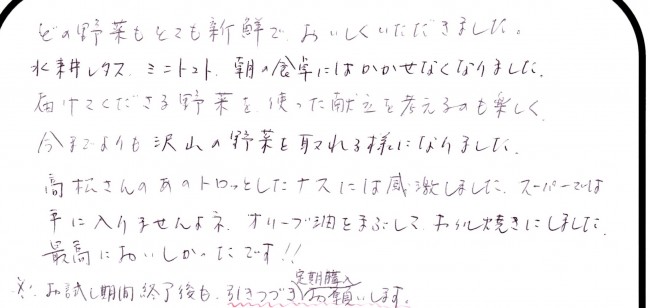 どの野菜もとても新鮮で、おいしくいただきました。
水耕レタス、ミニトマト、朝の食卓にはかかせなくなりました。
届けてくださる野菜を、使った献立を考えるのも楽しく、
今までよりも沢山の野菜を取れる様になりました。
高松さんのあのトロッとしたナスには感激しました。スーパーでは
手に入りませんよネ。オリーブ油をまぶして、おりル焼きにしました。
最高においしかったです!!
定期購入
※お試し期間終了後も、引きつづきお願いします。